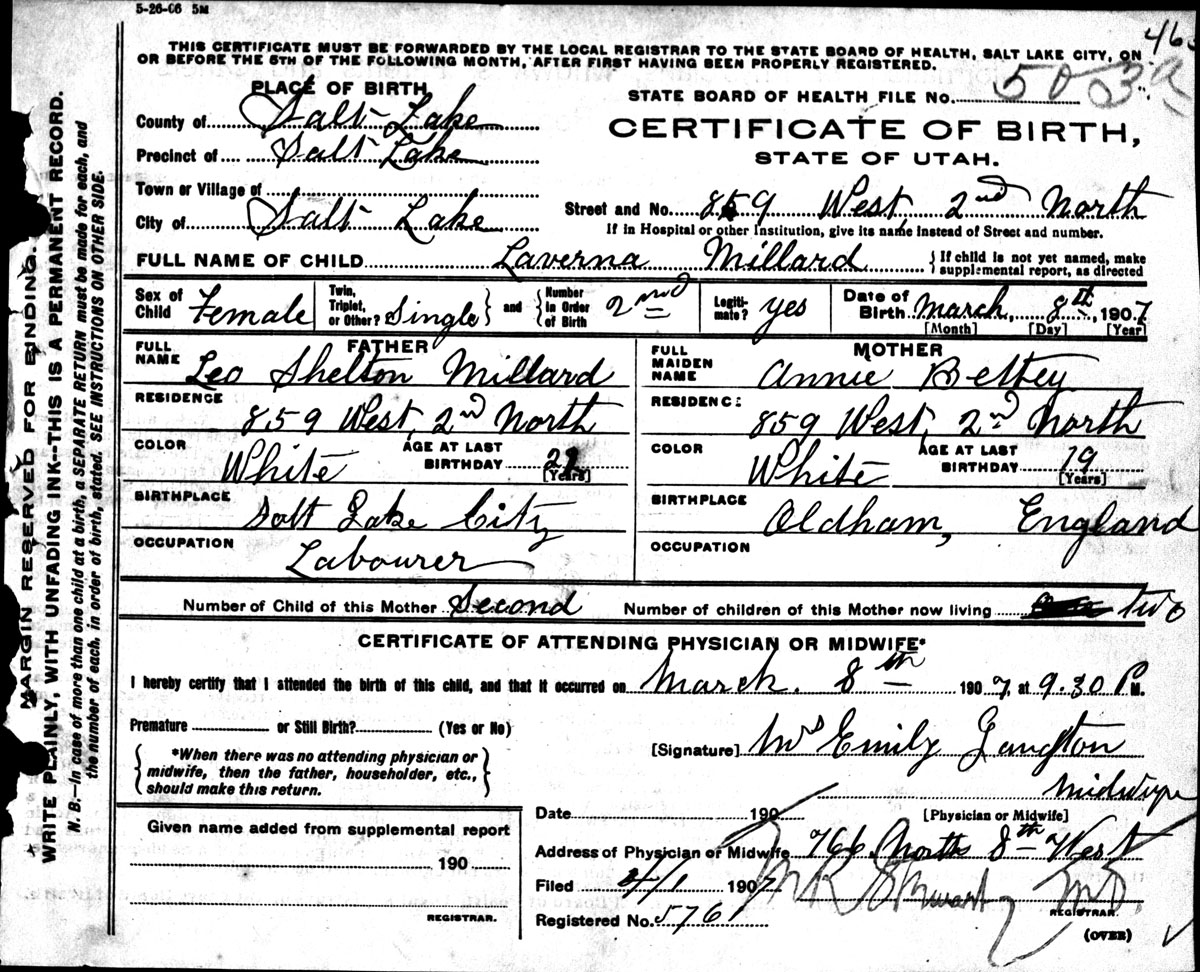 5-26-06 5M
46
THIS CERTIFICATE MUST BE FORWARDED BY THE LOCAL REGISTRAR TO THE STATE BOARD OF HEALTH, SALT LAKE CITY, ON
OR BEFORE THE 5TH OF THE FOLLOWING MONTH, AFTER FIRST HAVING BEEN PROPERLY REGISTERED.
PLACE OF BIRTH
STATE BOARD OF HEALTH FILE No. 503a
County of Salt Lake
CERTIFICATE OF BIRTH,
Precinct of Salt Lake
STATE OF UTAH.
Town or Village of
City of Salt Lake
Street and No. 859 West, 2nd North
If in Hospital or other Institution, give its name instead of Street and number.
FULL NAME OF CHILD Laverna Millard { If child is not yet named, make
supplemental report, as directed
Sex of Child Female
Twin, Triplet, or Other? Single } and { Number in Order of Birth 2nd
Legiti-mate? yes
Date of Birth March, 8th, 1907
[Month] [Day] [Year]
FATHER
FULL NAME Leo Shelton Millard
RESIDENCE 859 West, 2nd North
COLOR White AGE AT LAST BIRTHDAY 21 [Years]
BIRTHPLACE Salt Lake City
OCCUPATION Labourer
MOTHER
FULL MAIDEN NAME Annie Bettey
RESIDENCE 859 West, 2nd North
COLOR White AGE AT LAST BIRTHDAY 19 [Years]
BIRTHPLACE Oldham, England
OCCUPATION
Number of Child of this Mother Second Number of children of this Mother now living two
CERTIFICATE OF ATTENDING PHYSICIAN OR MIDWIFE*
I hereby certify that I attended the birth of this child, and that it occurred on March. 8th 1907, at 9.30 P M.
Premature or Still Birth? (Yes or No)
[Signature] Mrs Emily Langton
{ *When there was no attending physician or
midwife, then the father, householder, etc.,
should make this return. }
Midwife
[Physician or Midwife]
Date 190
Given name added from supplemental report
190
REGISTRAR.
Address of Physician or Midwife 766 North 8th West
Filed 4/1 1907 M R Stewart MD
REGISTRAR.
Registered No. 5761
(OVER)
MARGIN RESERVED FOR BINDING.
WRITE PLAINLY, WITH UNFADING INK--THIS IS A PERMANENT RECORD.
N. B.--In case of more than one child at a birth, a SEPARATE RETURN must be made for each, and
the number of each, in order of birth, stated. SEE INSTRUCTIONS ON OTHER SIDE.